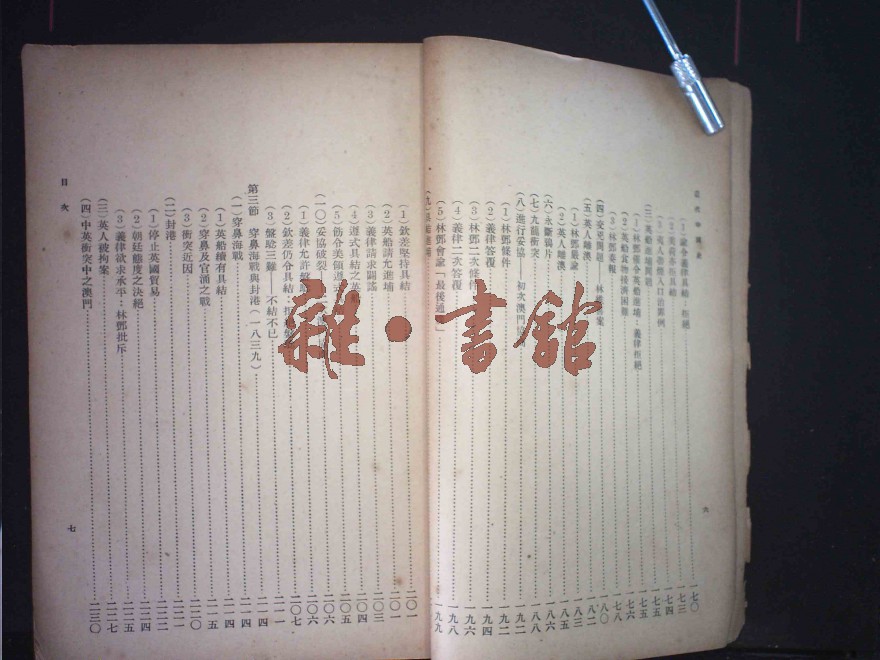 近代中國史
(1)諭令遵具結：拒絕 一七〇
一七三
(3)夷人帶鴉片入口治罪例 一七四
(三)英船進埔問題 一七五
(1)林鄧催令英船進埔：義律拒絕 一七五
(2)英船食物接濟困難
(3)林鄧奏報 一七八
(四)交兇問題——林維喜案 一八〇
(五)英人離澳 一八二
(1)林鄧嚴諭 一八三
(2)英人離澳 一八五
(六)永斷鴉片 一八六
(七)九龍衝突 一八八
(八)進行妥協——初次澳門 一九二
(1)林鄧條件 一九二
(2)義律答覆 一九四
(3)林鄧二次條件 一九六
(4)義律二次答覆 一九八
(5)林鄧會諭「最後通 」 一九九
(九)具結進埔
六
目次
(1)欽差堅持具結 二〇一
(2)英船請先進埔 二〇一
(3)義律請求闢謠 二〇三
(4)遵式具結之英船 二〇四
(5)飭令美領遵 二〇五
(一〇)妥協破裂 二〇六
(1)義律允許 二〇六
(2)欽差仍令具結：拒絕 二〇七
(3)盤踞三難——不結不已 二一一
第三節 穿鼻海戰與封港(一八三九) 二一四
(一)穿鼻海戰 二一四
(1)英船續有具結 二一四
(2)穿鼻及官涌之戰 二一五
(3)衝突近因 二二〇
(二)封港 二二二
(1)停止英國貿易 二二二
(2)朝廷態度之決絕 二二四
(3)義律欲求承平：林鄧批斥
(三)英人被拘案 二二七
(四)中英衝突中之澳門 二三〇
七
雜·書館